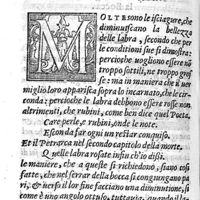 la Bocca.
MOLTE sono le sciagure, che
diminuiscano la bellezza
delle labra, secondo che per
le conditioni sue si dimostra:
percioche uogliono essere nō
troppo sottili, ne troppo gros
se: ma che in mirar ui uer
miglio loro apparisca sopra lo incarnato, che le cir
conda: perche le labra debbono essere rosse non
altrimenti, che rubini, come ben dice quel Poeta.
Care perle, e rubini, onde le note.
Escon da far ogni un restar conquiso.
Et il Petrarca nel secondo capitolo della morte.
Quelle labra rosate insin ch'io dissi.
le maniere, che a queste si richiedono, siano così
fatte, che nel serrar della bocca si congiungano pa
ri, & uerso il lor fine facciano una diminutione, si
come è uno angolo ottuso, tuttauia, quando la